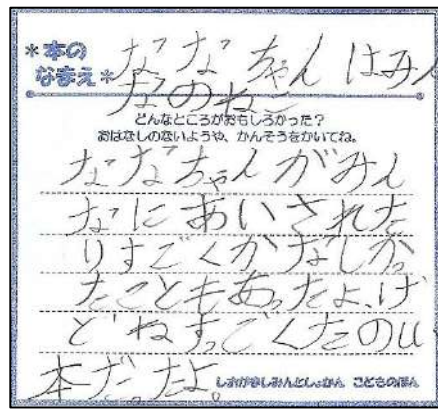 *本の
なまえ*
ななちゃんはみん
なのねこ
どんなところがおもしろかった?
おはなしのないようや、かんそうをかいてね。
ななちゃんがみん
なにあいされた
りすごくかなしかっ
たこともあったよ、け
どねすっごくたのし
本だったよ。
しおがましみんとしょかん こどものほん